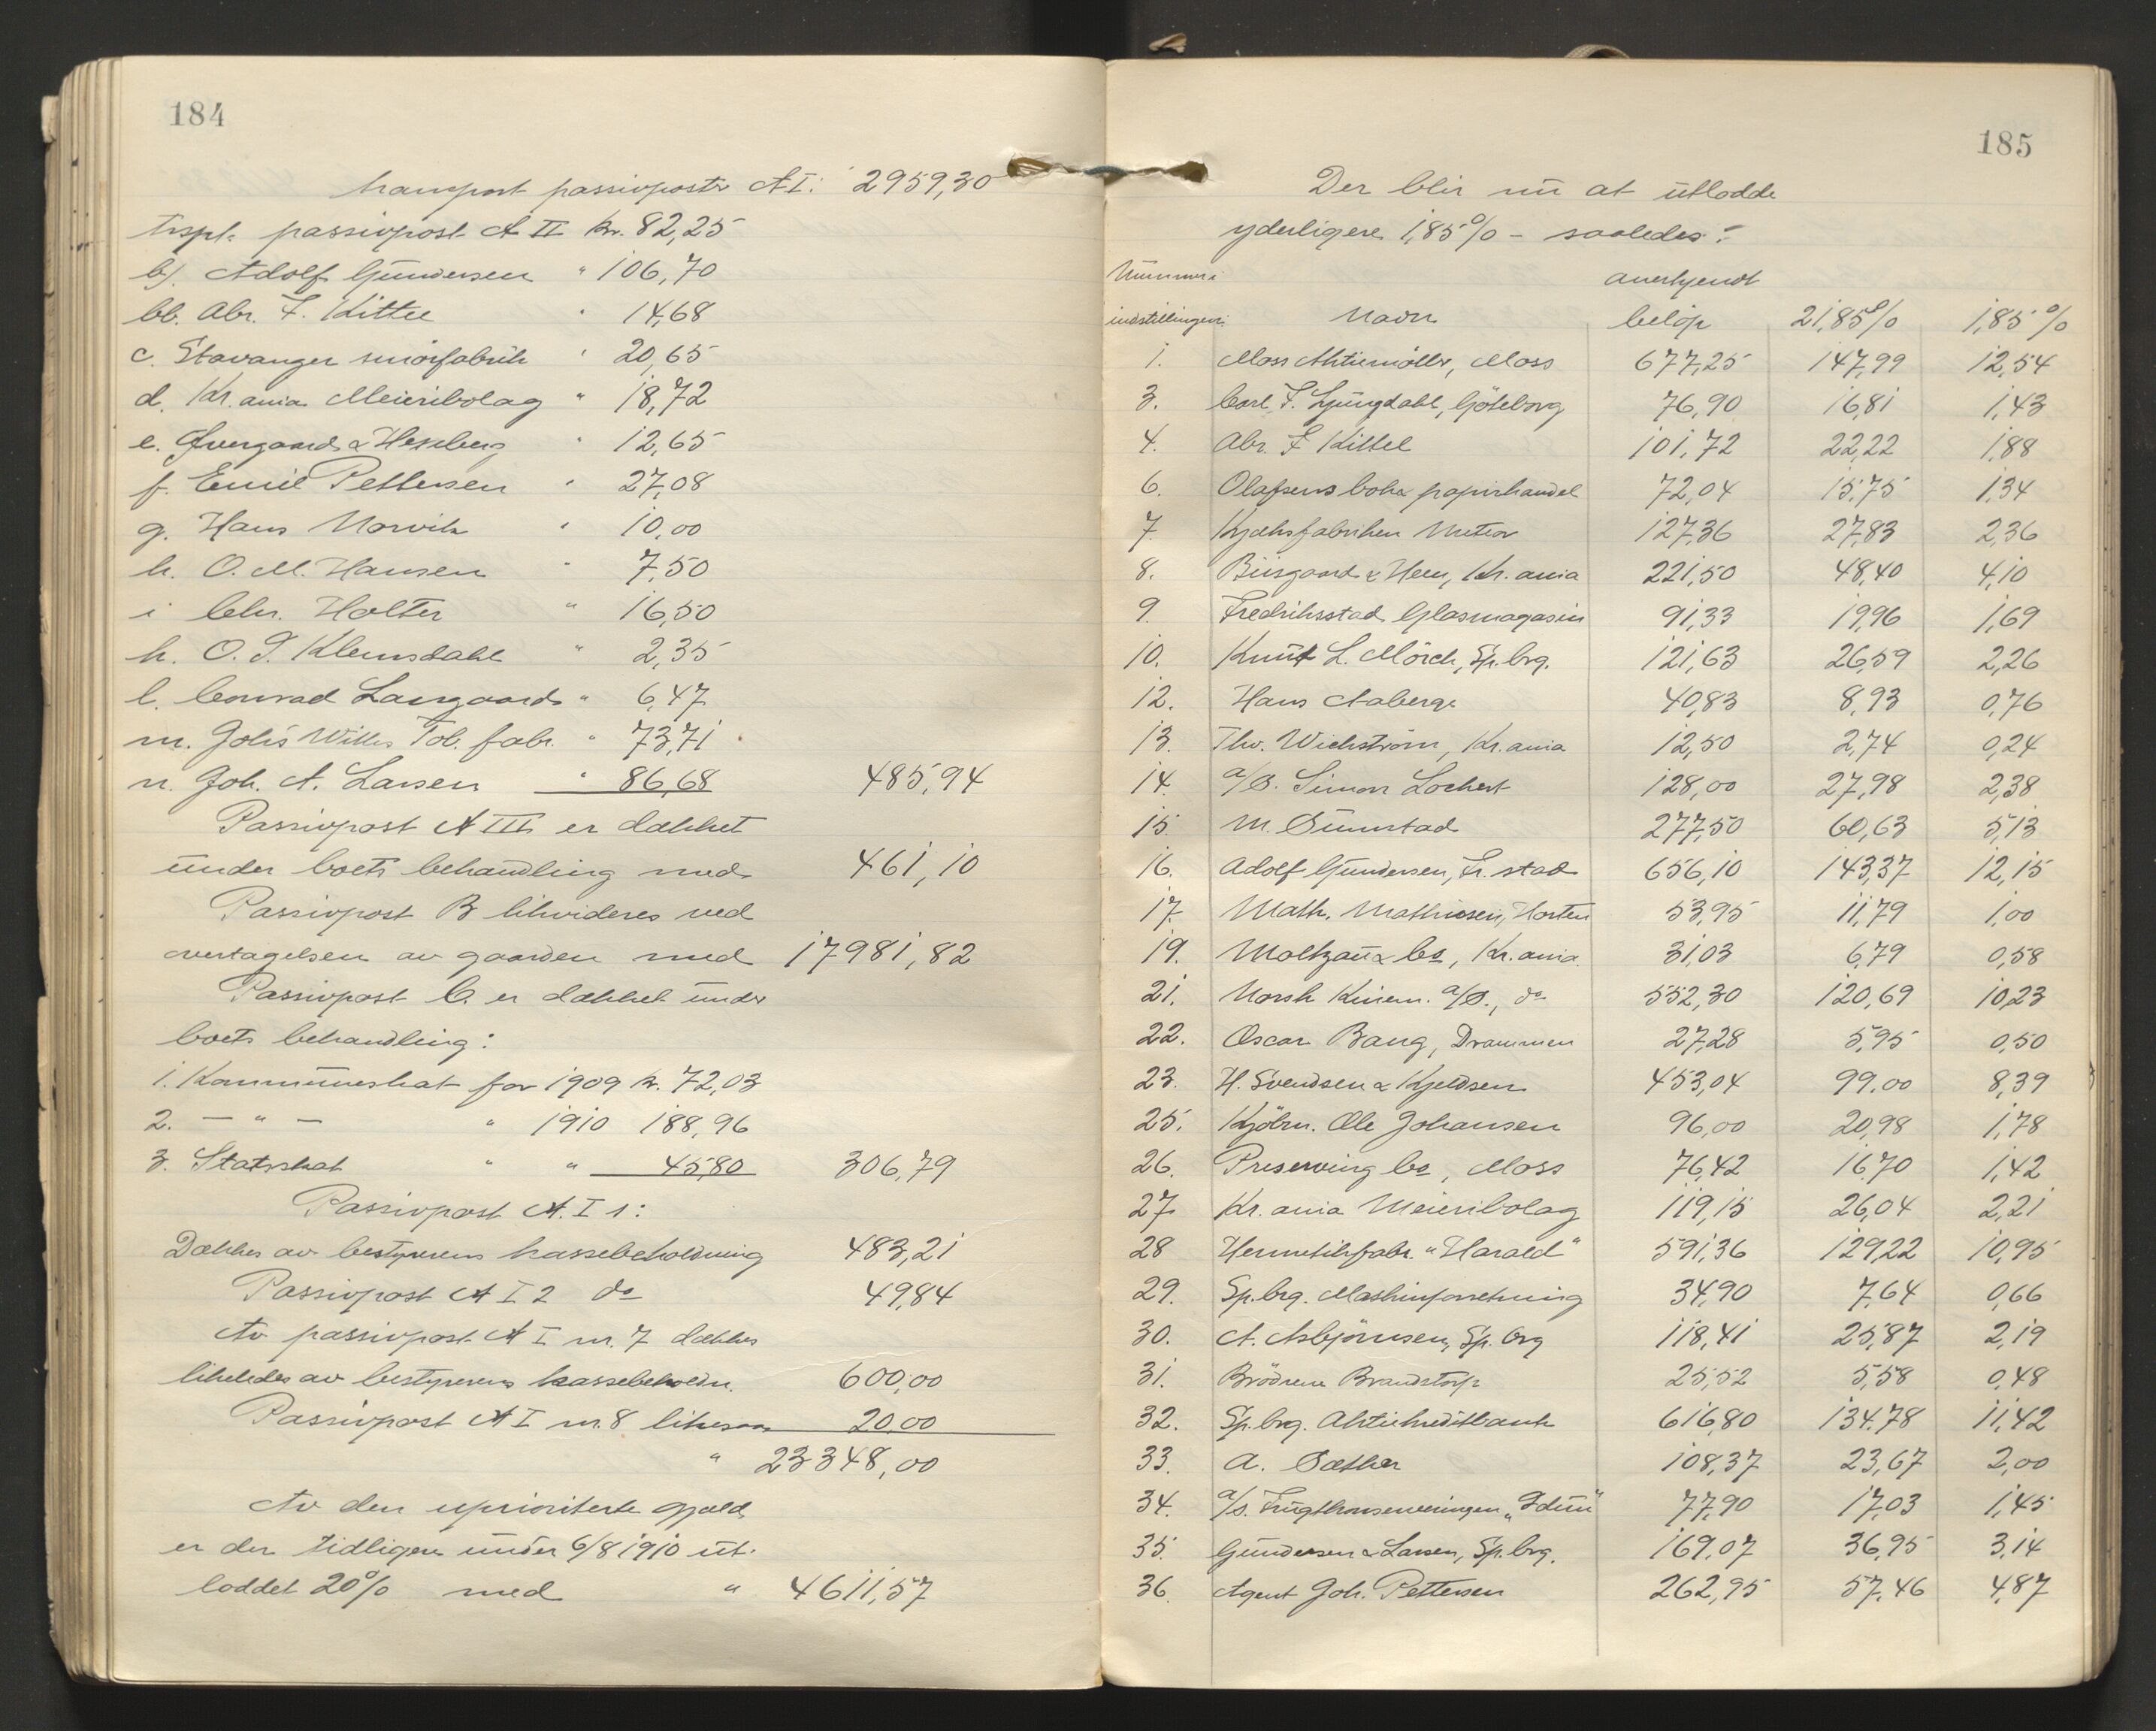 184
transport passivposter A I: 2959,30
Trspt. passivpost A II kr. 82,25
b). Adolf Gundersen " 106,70
bb. Abr. F. Kittel " 14,68
c. Stavanger smörfabrik " 20,65
d. Kr.ania Meieribolag " 18,72
e. Övergaard & Hesselberg " 12,65
f. Emil Pettersen " 27,08
g. Hans Norvik " 10,00
h. O. M. Hansen " 7,50
i Chr. Holter " 16,50
k. O. J. Klemsdahl " 2,35
l. Conrad Langaard " 6,47
m. Joh's Willes Tob. fabr. " 73,71
n. Joh. A. Larsen " 86,68 485,94
Passivpost A III er dækket
under boets behandling med 461,10
Passivpost B likvideres ved
overtagelsen av gaarden med 17981,82
Passivpost C. er dækket under
boets behandling:
1. Kommuneskat for 1909 kr. 72,03
2. — " — " 1910 188,96
3. Statsskat " " 45,80 306,79
Passivpost A. I 1:
Dækkes av bestyrerens kassebeholdning 483,21
Passivpost A I 2 do 49,84
Av passivpost A I nr. 7 dækkes
likeledes av bestyrerens kassebeholdn. 600,00
Passivpost A I nr. 8 likesaa 20,00
" 23348,00
Av den uprioriterte gjæld
er der tidligere under 6/8 1910 ut-
loddet 20% med " 4611,57
185
Der blir nu at utlodde
yderligere 1,85% – saaledes:
Nummer i anerkjendt
indstillingen: Navn beløp 21,85% 1,85%
1. Moss Aktiemøller, Moss 677,25 147,99 12,54
3. Carl F. Ljungdahl, Göteborg 76,90 16,81 1,43
4. Abr. F Kittel 101,72 22,22 1,88
6. Olafsens bok & papirhandel 72,04 15,75 1,34
7. Kjæksfabriken Meteor 127,36 27,83 2,36
8. Biirgaard & Heen, Kr.ania 221,50 48,40 4,10
9. Fredriksstad Glasmagasin 91,33 19,96 1,69
10. Knut L. Mörch, Sp.brg. 121,63 26,59 2,26
12. Hans Aaberge 40,83 8,93 0,76
13. Thv. Wickström, Kr.ania 12,50 2,74 0,24
14. a/s. Simon Lochert 128,00 27,98 2,38
15. M. Sunnstad 277,50 60,63 5,13
16. Adolf Gundersen, Fr.stad 656,10 143,37 12,15
17. Math. Mathiesen, Horten 53,95 11,79 1,00
19. Moltzau & Co, Kr.ania 31,03 6,79 0,58
21. Norsk Kinem. a/s., do 552,30 120,69 10,23
22. Oscar Bang, Drammen 27,28 5,95 0,50
23. H. Svendsen & Kjeldsen 453,04 99,00 8,39
25. Kjöbm. Ole Johansen 96,00 20,98 1,78
26. Preserving Co, Moss 76,42 16,70 1,42
27. Kr.ania Meieribolag 119,15 26,04 2,21
28 Hermetikfabr. "Harald" 591,36 129,22 10,95
29. Sp.brg. Maskinforretning 34,90 7,64 0,66
30. A. Asbjörnsen, Sp.brg 118,41 25,87 2,19
31. Brödrene Brandstorp 25,52 5,58 0,48
32. Sp.brg. Aktiekreditbank 616,80 134,78 11,42
33. A. Sæther 108,37 23,67 2,00
34. a/s. Frugtkonserveringen "Idun" 77,90 17,03 1,45
35. Gundersen & Larsen, Sp.brg. 169,07 36,95 3,14
36. Agent Joh. Pettersen 262,95 57,46 4,87